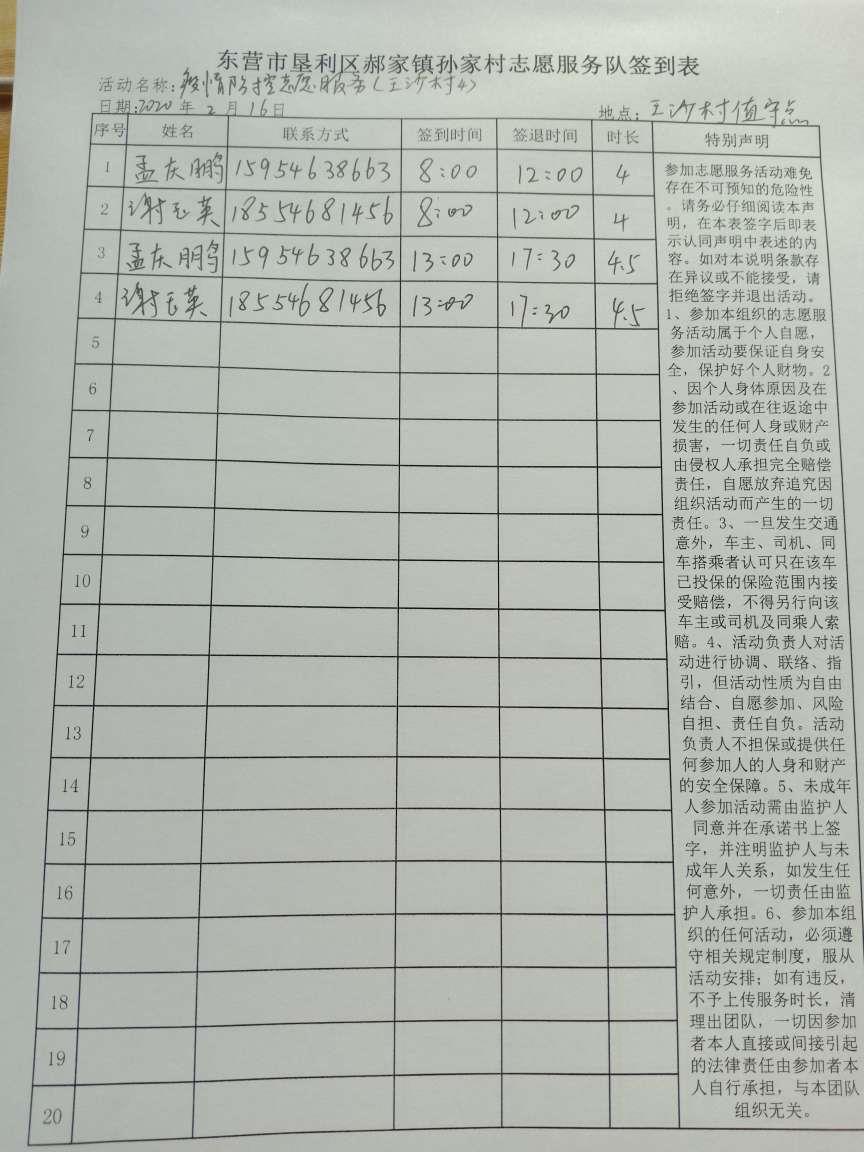 东营市垦利区郝家镇孙家村志愿服务队签到表
活动名称：疫情防控志愿服务（王沙村4）
日期：2020 年 2 月 16 日 地点：王沙村值守点
序号 姓名 联系方式 签到时间 签退时间 时长 特别声明
1 孟庆鹏 15954638663 8:00 12:00 4
2 谢玉英 18554681456 8:00 12:00 4
3 孟庆鹏 15954638663 13:00 17:30 4.5
4 谢玉英 18554681456 13:00 17:30 4.5
5
6
7
8
9
10
11
12
13
14
15
16
17
18
19
20
参加志愿服务活动难免
存在不可预知的危险性
。请务必仔细阅读本声
明，在本表签字后即表
示认同声明中表述的内
容。如对本说明条款存
在异议或不能接受，请
拒绝签字并退出活动。
1、参加本组织的志愿服
务活动属于个人自愿，
参加活动要保证自身安
全，保护好个人财物。2
、因个人身体原因及在
参加活动或在往返途中
发生的任何人身或财产
损害，一切责任自负或
由侵权人承担完全赔偿
责任，自愿放弃追究因
组织活动而产生的一切
责任。3、一旦发生交通
意外，车主、司机、同
车搭乘者认可只在该车
已投保的保险范围内接
受赔偿，不得另行向该
车主或司机及同乘人索
赔。4、活动负责人对活
动进行协调、联络、指
引，但活动性质为自由
结合、自愿参加、风险
自担、责任自负。活动
负责人不担保或提供任
何参加人的人身和财产
的安全保障。5、未成年
人参加活动需由监护人
同意并在承诺书上签
字，并注明监护人与未
成年人关系，如发生任
何意外，一切责任由监
护人承担。6、参加本组
织的任何活动，必须遵
守相关规定制度，服从
活动安排；如有违反，
不予上传服务时长，清
理出团队，一切因参加
者本人直接或间接引起
的法律责任由参加者本
人自行承担，与本团队
组织无关。